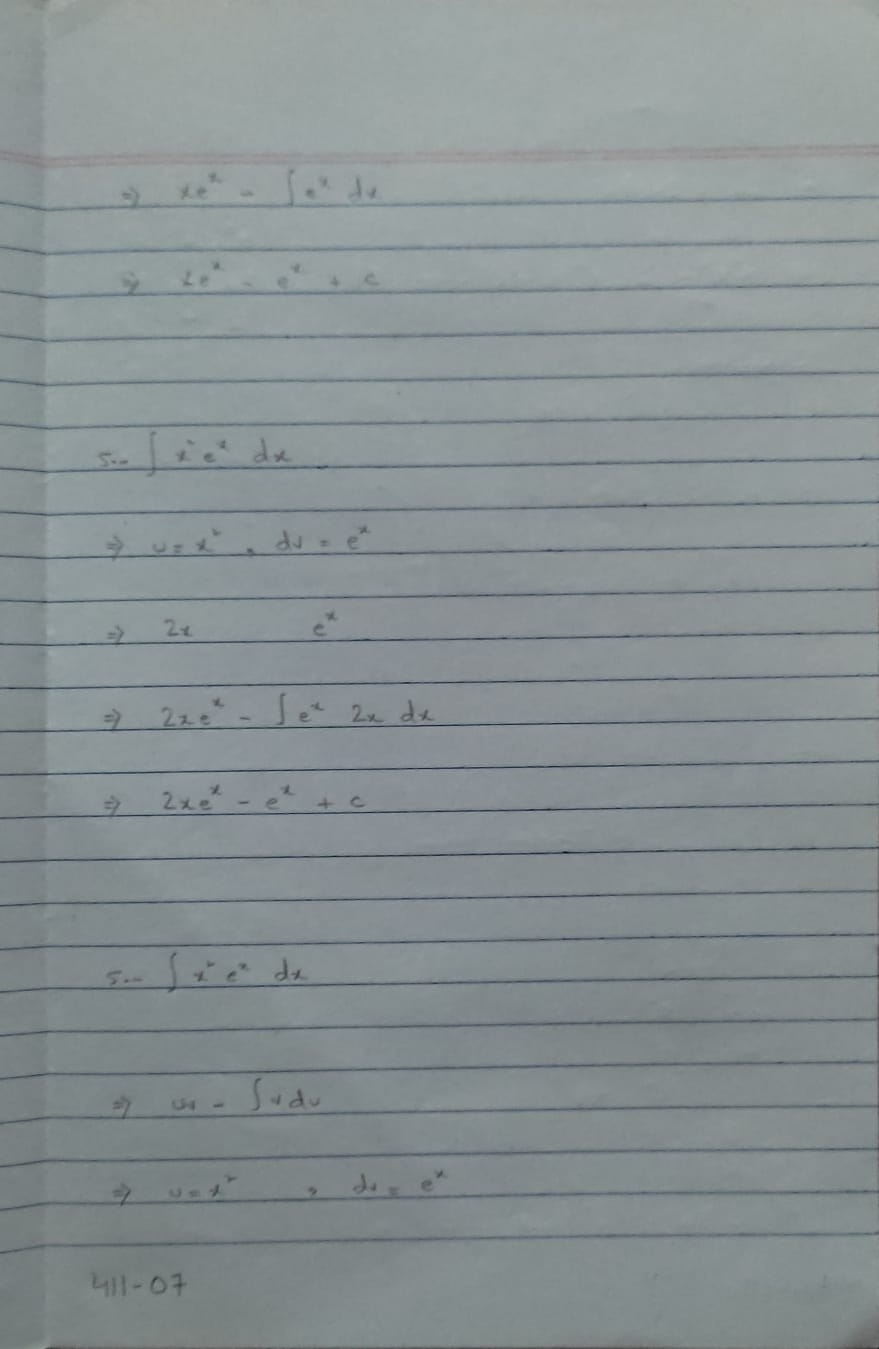 ⇒ xeˣ - ∫eˣ dx
⇒ xeˣ - eˣ + c
5.. ∫ x²eˣ dx
⇒ u = x² , dv = eˣ
⇒ 2x eˣ
⇒ 2xeˣ - ∫eˣ 2x dx
⇒ 2xeˣ - eˣ + c
5.. ∫ x² eˣ dx
⇒ uv - ∫v du
⇒ u = x² , dv = eˣ
411-07